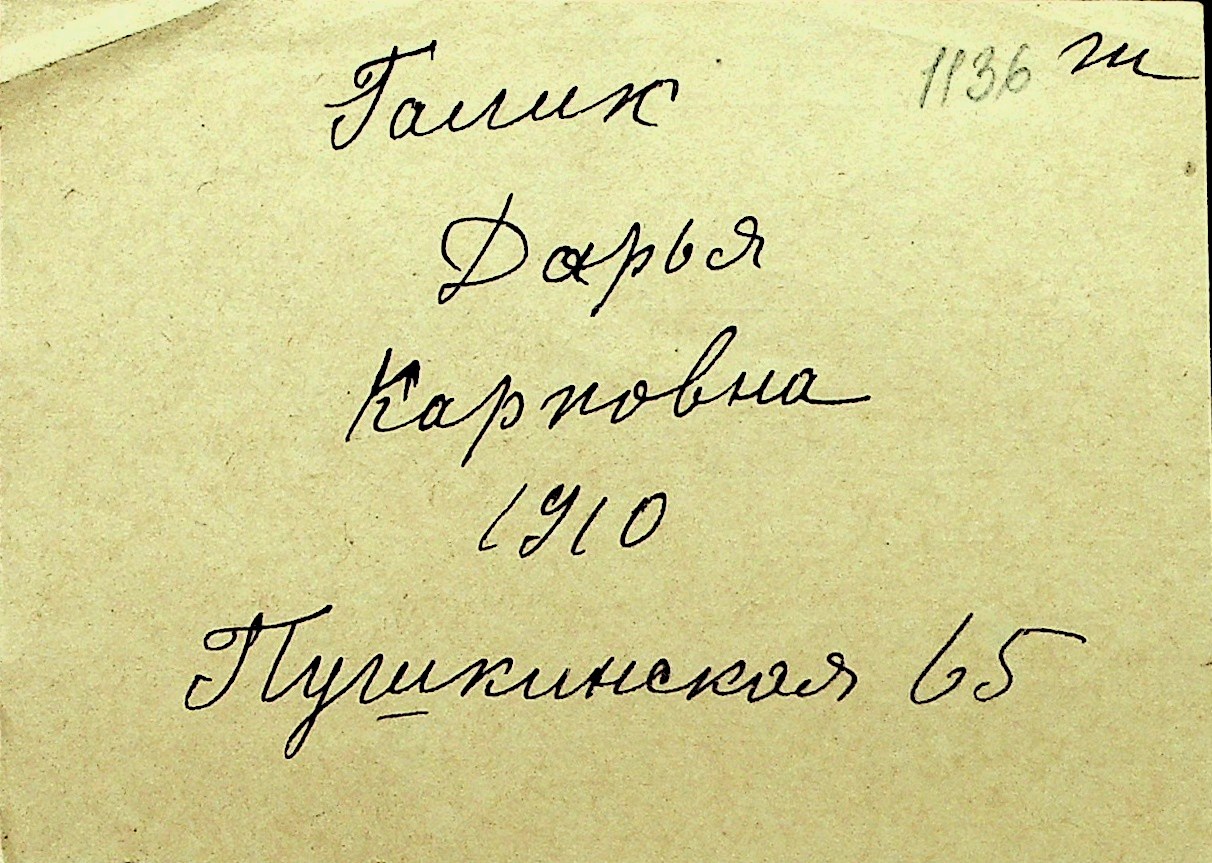 1136 т
Галик
Дарья
Карповна
1910
Пушкинская 65